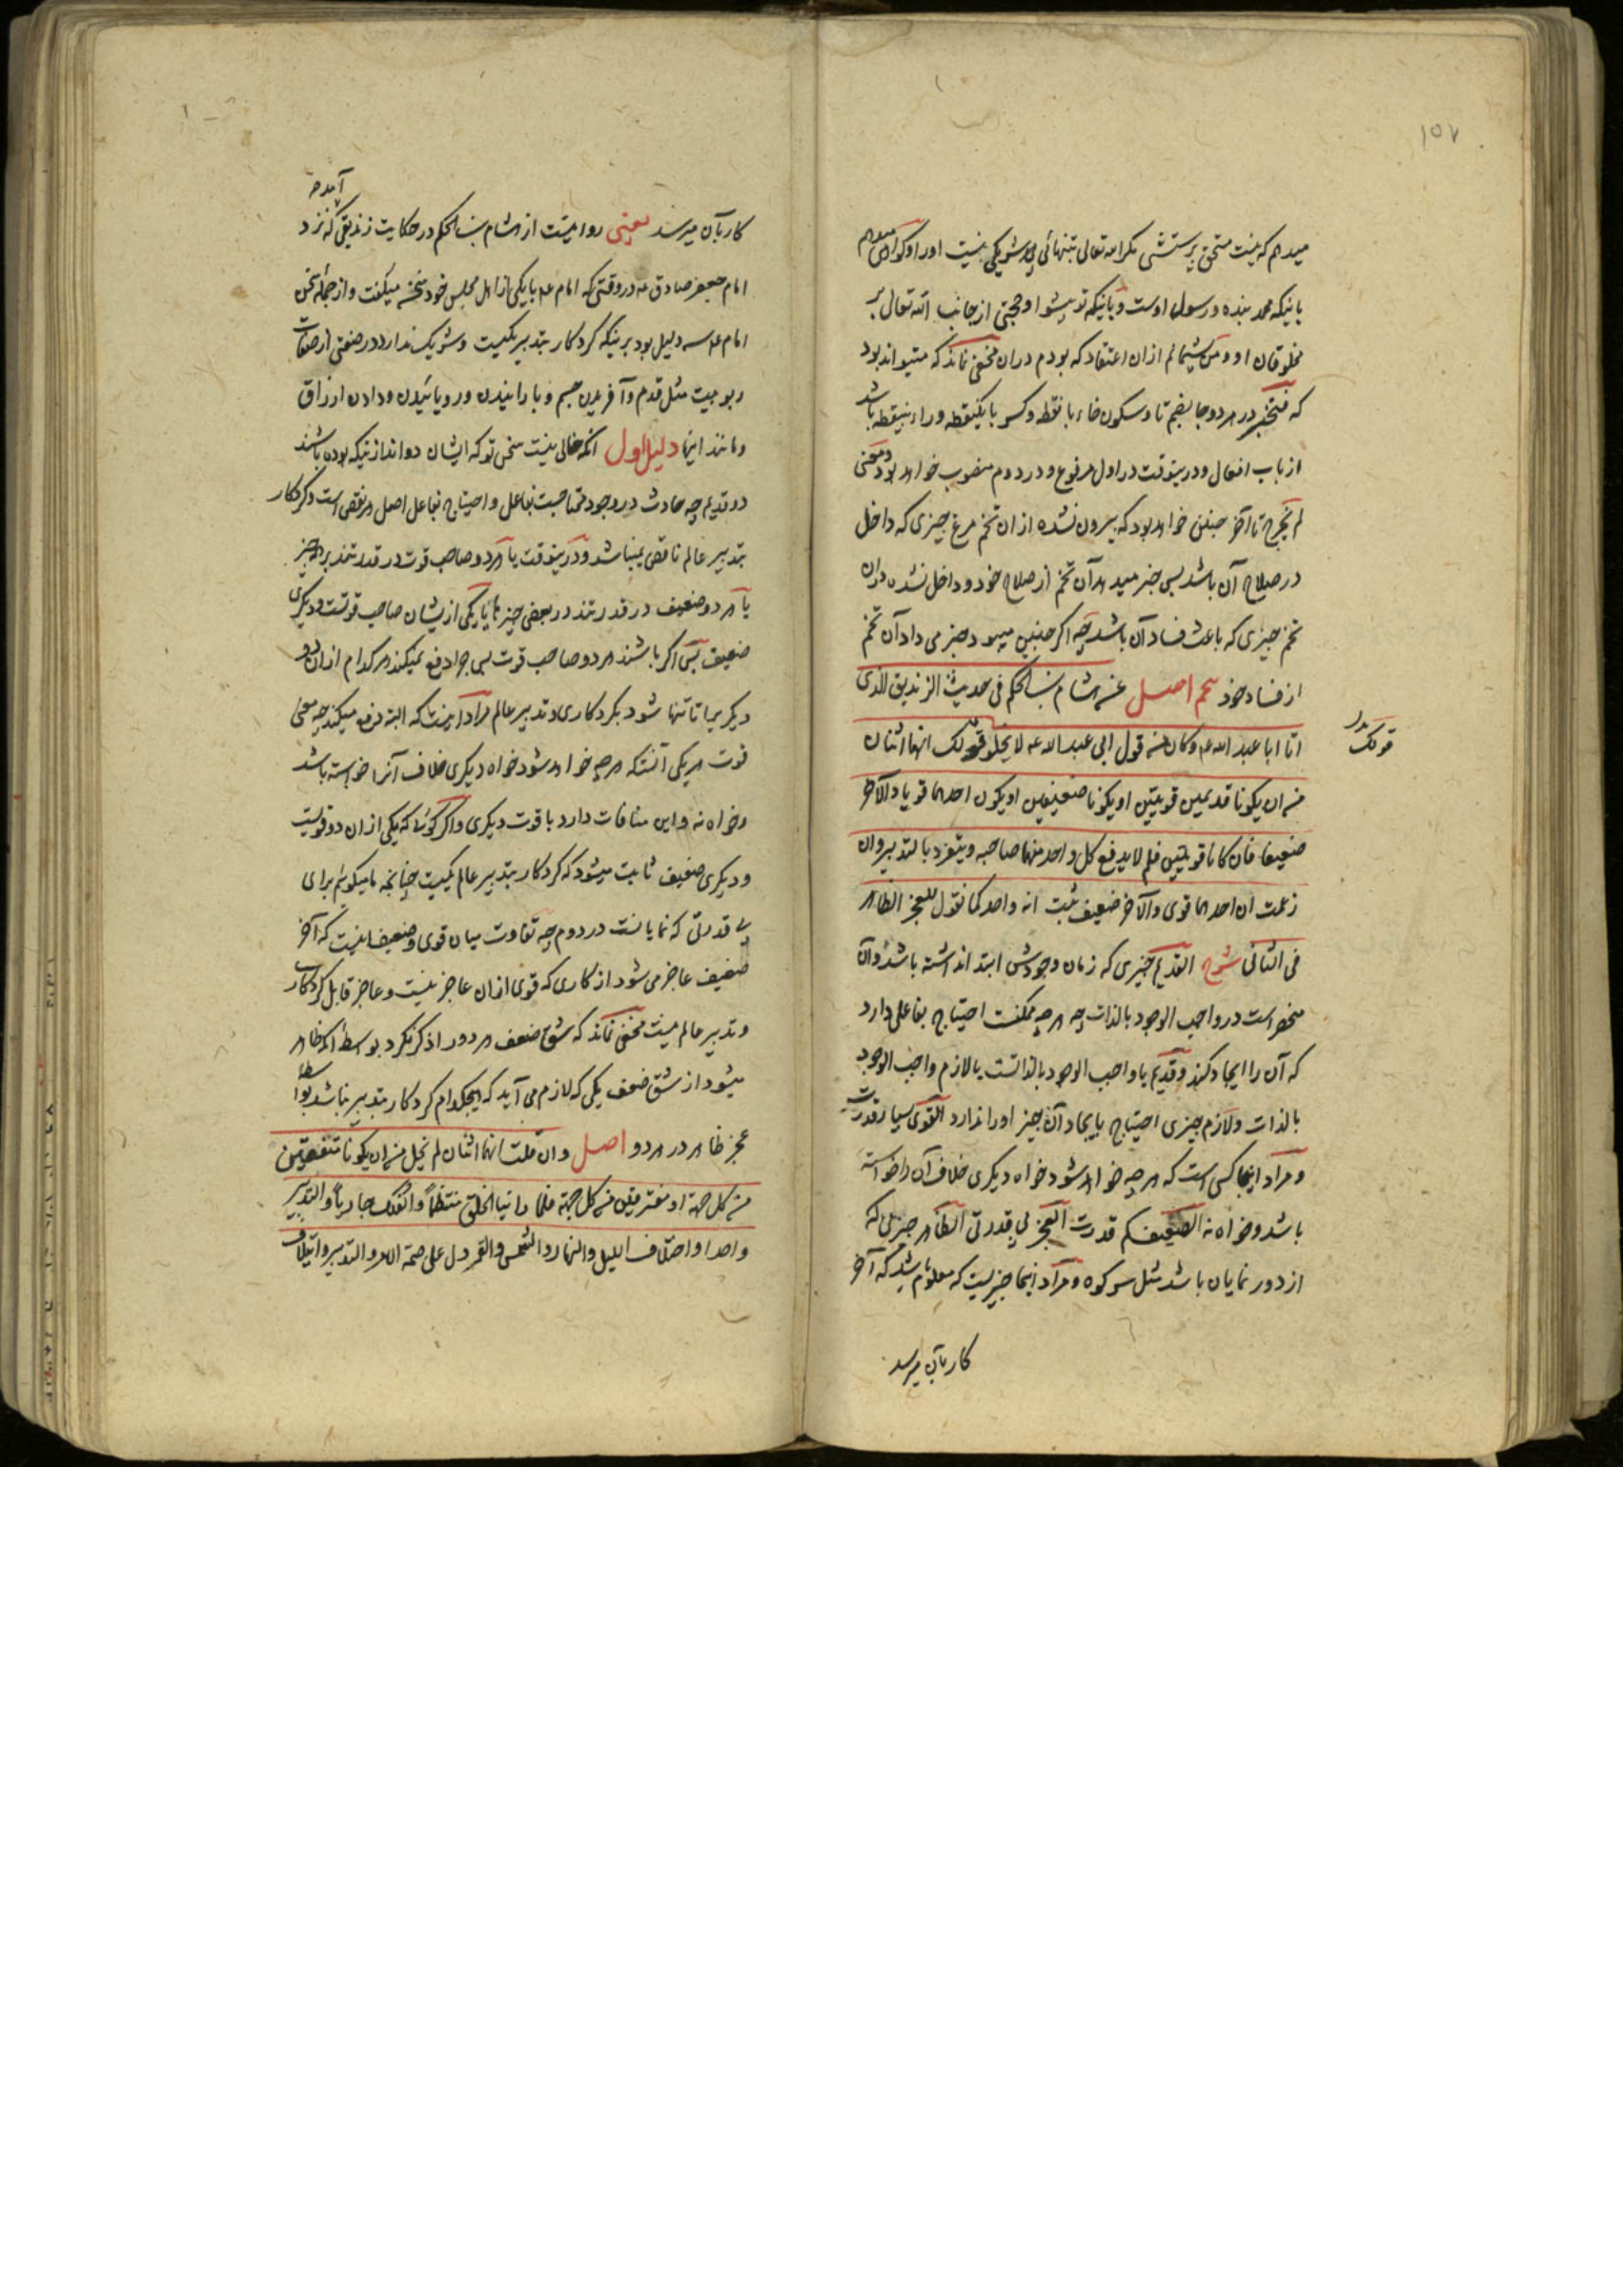 ۱۵۷
میدهم که نیست مستحق پرستش مگر الله تعالی بتنهائی شریکی نیست او را و گواهی میدهم
باینکه محمد بنده و رسول اوست و باینکه تو پیشوا و حجتی از جانب الله تعالی بر
مخلوقان او و من پشیمانم از ان اعتقاد که بودم دران مخفی نماند که میتواند بود
که فتخبر در هر دو جا بضم تا و سکون خاء با نقطه و کسر با یکنقطه و راء بینقطه باشد
از باب افعال و درینوقت در اول مرفوع و در دوم منصوب خواهد بود و معنی
لم یخرج تا آخر چنین خواهد بود که بیرون نشده از ان تخم مرغ چیزی که داخل
در صلاح آن باشد پس خبر میدهد آن تخم از صلاح خود و داخل نشده دران
تخم چیزی که باعث فساد آن باشد چه اگر چنین میبود خبر می داد آن تخم
از فساد خود اصل عن هشام بن الحکم فی حدیث الزندیق الذی
اتا ابا عبد الله ع و کان من قول ابی عبد الله ع لا یخلو قولک انهما اثنان
قولک بدل
من ان یکونا قدیمین قویین او یکونا ضعیفین او یکون احدهما قویا و الآخر
ضعیفا فان کانا قویین فلم لا یدفع کل واحد منهما صاحبه و یتفرد بالتدبیر و ان
زعمت ان احدهما قوی و الآخر ضعیف ثبت انه واحد کما نقول للعجز الظاهر
فی الثانی شرح القدیم چیزی که زمان وجودش ابتدا نداشته باشد و آن
منحصر است در واجب الوجود بالذات چه هر چه ممکنست احتیاج بفاعلی دارد
که آن را ایجاد کند و قدیم یا واجب الوجود بالذاتست یا لازم واجب الوجود
بالذات و لازم چیزی احتیاج بایجاد آن چیز او را ندارد القوی بسیار قدرت
و مراد اینجا کسی است که هر چه خواهد شود خواه دیگری خلاف آن را خواسته
باشد و خواه نه الضعیف کم قدرت العجز بی قدرتی الظاهر چیزی که
از دور نمایان باشد مثل سر کوه و مراد اینجا چیزیست که معلوم باشد که آخر
کار بآن میرسد
کار بآن میرسد یعنی روایتست از هشام بن الحکم در حکایت زندیقی که نزد
آمده
امام جعفر صادق ع در وقتی که امام ع با یکی از اهل مجلس خود سخن میگفت و از جمله سخن
امام ع سه دلیل بود برینکه کردکار بتدبیر یکیست و شریک ندارد در صنعتی از صفات
ربوبیت مثل قدم و آفریدن جسم و بارانیدن و رویانیدن و دادن ارزاق
و مانند اینها دلیل اول آنکه خالی نیست سخن تو که ایشان دو اند ازینکه بوده باشند
دو قدیم چه حادث در وجود محتاجست بفاعل و احتیاج بفاعل اصل هر نقص است و کردکار
بتدبیر عالم ناقص نمیباشد و درینوقت یا هر دو صاحب قوت در قدرتند بر هر چیز
یا هر دو ضعیف در قدرتند در بعضی چیزها یا یکی ازیشان صاحب قوتست و دیگری
ضعیف پس اگر باشند هر دو صاحب قوت پس چرا دفع نمیکند هر کدام از ان دو
دیگریرا تا تنها شود بکردکاری و تدبیر عالم مراد اینست که البته دفع میکند چه معنی
قوت هر یکی آنستکه هر چه خواهد شود خواه دیگری خلاف آنرا خواسته باشد
و خواه نه و این منافات دارد با قوت دیگری و اگر گوئی که یکی از ان دو قویست
و دیگری ضعیف ثابت میشود که کردکار بتدبیر عالم یکیست چنانچه ما میگوئیم برای
بی قدرتی که نمایانست در دوم چه تفاوت میان قوی و ضعیف اینست که آخر
ضعیف عاجز می شود از کاری که قوی از ان عاجز نیست و عاجز قابل کردکاری
و تدبیر عالم نیست مخفی نماند که شق ضعف هر دو را ذکر نکرد بواسطه آنکه ظاهر
میشود از شق ضعف یکی که لازم می آید که هیچکدام کردکار بتدبیر نباشد بواسطه
عجز ظاهر در هر دو اصل و ان قلت انهما اثنان لم یخل من ان یکونا متفقین
من کل جهة او مفترقین من کل جهة فلما راینا الخلق منتظماً و الفلک جاریاً و التدبیر
واحدا و اختلاف اللیل و النهار و الشمس و القمر دل علی صحة الامر و التدبیر و ایتلاف